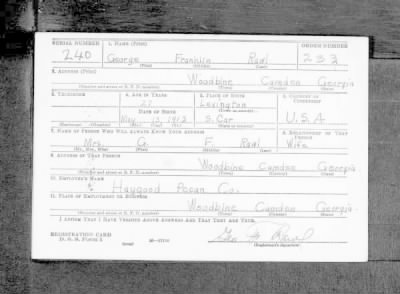 SERIAL NUMBER 1. NAME (Print) ORDER NUMBER
240 George Franklin Rawl 233
(First) (Middle) (Last)
2. ADDRESS (Print)
Woodbine Camden Georgia
(Number and street or R. F. D. number) (Town) (County) (State)
3. TELEPHONE 4. AGE IN YEARS 5. PLACE OF BIRTH 6. COUNTRY OF CITIZENSHIP
Lexington
DATE OF BIRTH
May 13, 1912 S. Car U.S.A
7. NAME OF PERSON WHO WILL ALWAYS KNOW YOUR ADDRESS 8. RELATIONSHIP OF THAT PERSON
Mrs. G. F. Rawl Wife
(Mr., Mrs., Miss) (First) (Middle) (Last)
9. ADDRESS OF THAT PERSON
Woodbine Camden Georgia
(Number and street or R. F. D. number) (Town) (County) (State)
10. EMPLOYER'S NAME
Haygood Pecan Co.
11. PLACE OF EMPLOYMENT OR BUSINESS
Woodbine Camden Georgia
(Number and street or R. F. D. number) (Town) (County) (State)
I AFFIRM THAT I HAVE VERIFIED ABOVE ANSWERS AND THAT THEY ARE TRUE.
REGISTRATION CARD
D. S. S. Form 1 Geo F Rawl
(Registrant's signature)